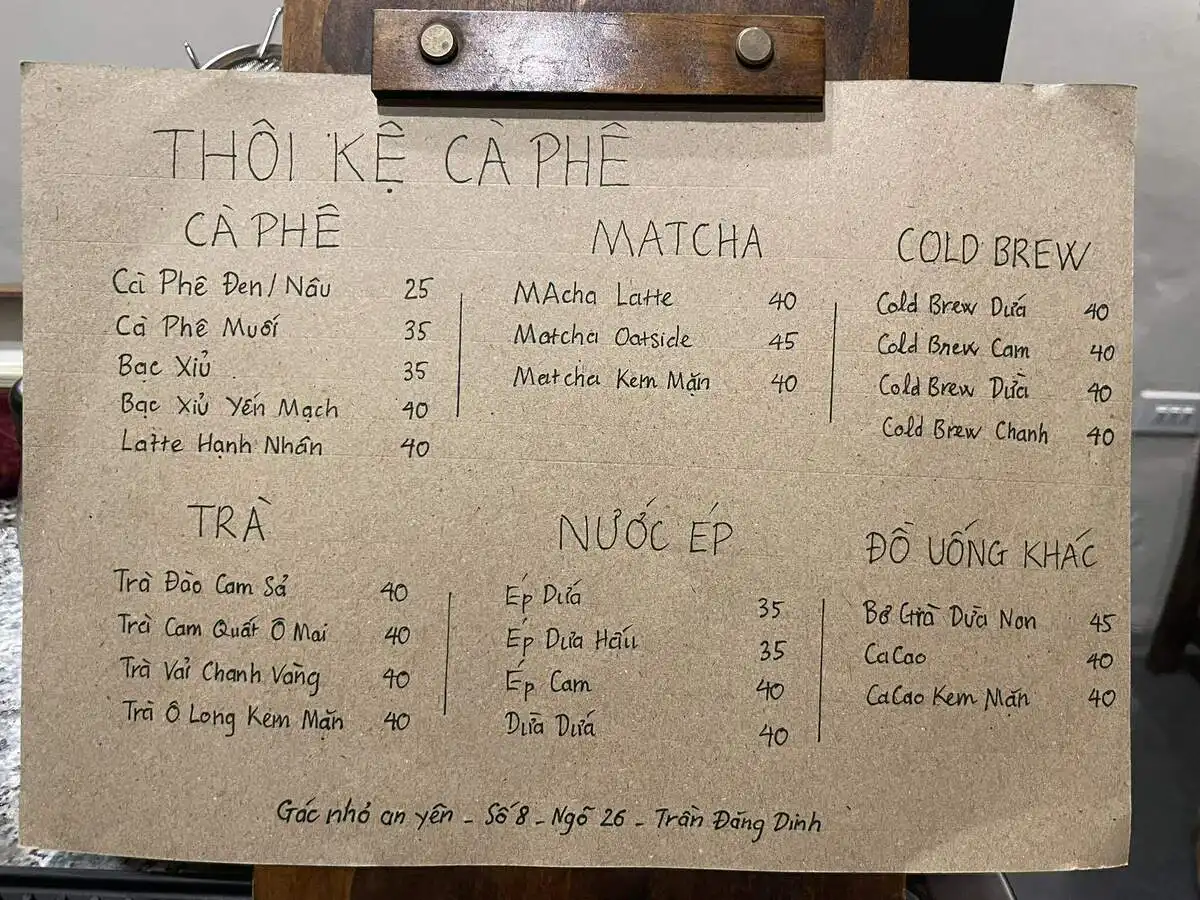 THÔI KỆ CÀ PHÊ
CÀ PHÊ
Cà Phê Đen/Nâu 25
Cà Phê Muối 35
Bạc Xỉu 35
Bạc Xỉu Yến Mạch 40
Latte Hạnh Nhân 40
MATCHA
MAcha Latte 40
Matcha Oatside 45
Matcha Kem Mặn 40
COLD BREW
Cold Brew Dứa 40
Cold Brew Cam 40
Cold Brew Dừa 40
Cold Brew Chanh 40
TRÀ
Trà Đào Cam Sả 40
Trà Cam Quất Ô Mai 40
Trà Vải Chanh Vàng 40
Trà Ô Long Kem Mặn 40
NƯỚC ÉP
Ép Dứa 35
Ép Dưa Hấu 35
Ép Cam 40
Dừa Dứa 40
ĐỒ UỐNG KHÁC
Bơ Già Dừa Non 45
CaCao 40
CaCao Kem Mặn 40
Gác nhỏ an yên - Số 8 - Ngõ 26 - Trần Đăng Dinh